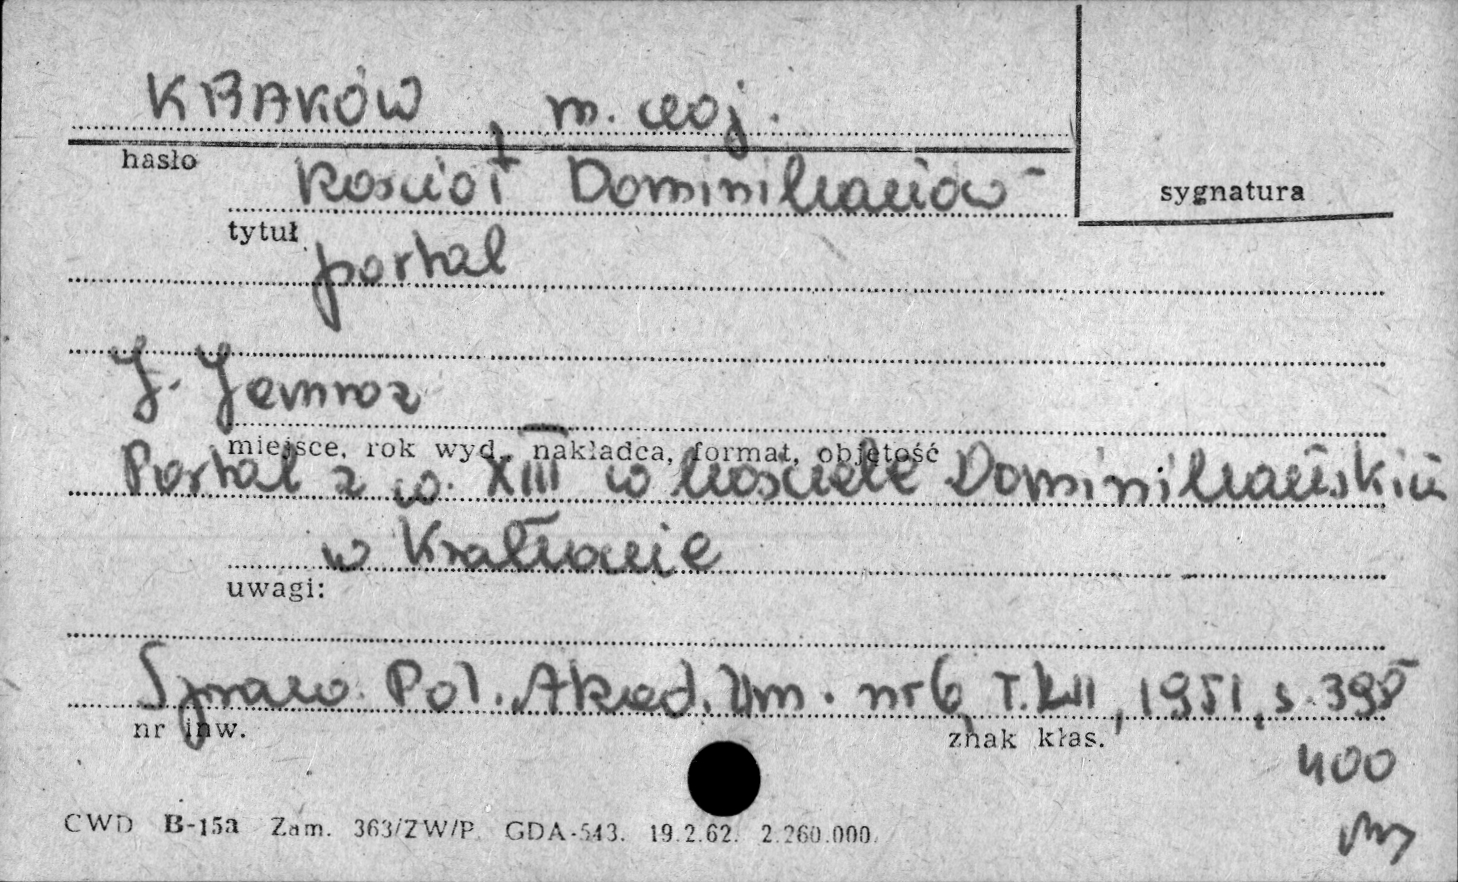 KRAKÓW, m. woj.
hasło
Kościół Dominikanów -
sygnatura
tytuł
portal
J. Jamroz
miejsce, rok wyd., nakładca, format, objętość
Portal z w. XIII w kościele Dominikańskim
w Krakowie
uwagi:
Spraw. Pol. Akad. Um. nr 6, T. LII, 1951, s. 395
nr inw.
znak klas.
400
CWD B-15a Zam. 363/ZW/P. GDA-543. 19.2.62. 2.260.000.